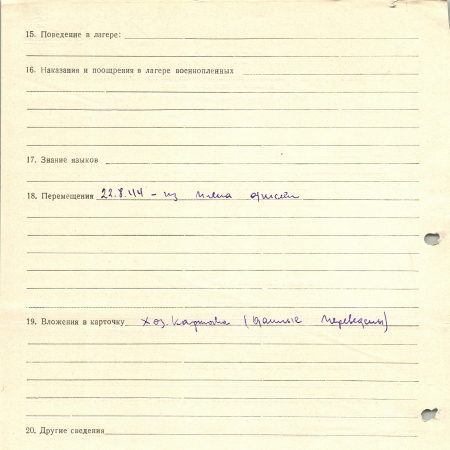 15. Поведение в лагере:
16. Наказания и поощрения в лагере военнопленных
17. Знание языков
18. Перемещения 22.8.44 – из плена
19. Вложения в карточку хоз. карточка (данные переведены)
20. Другие сведения